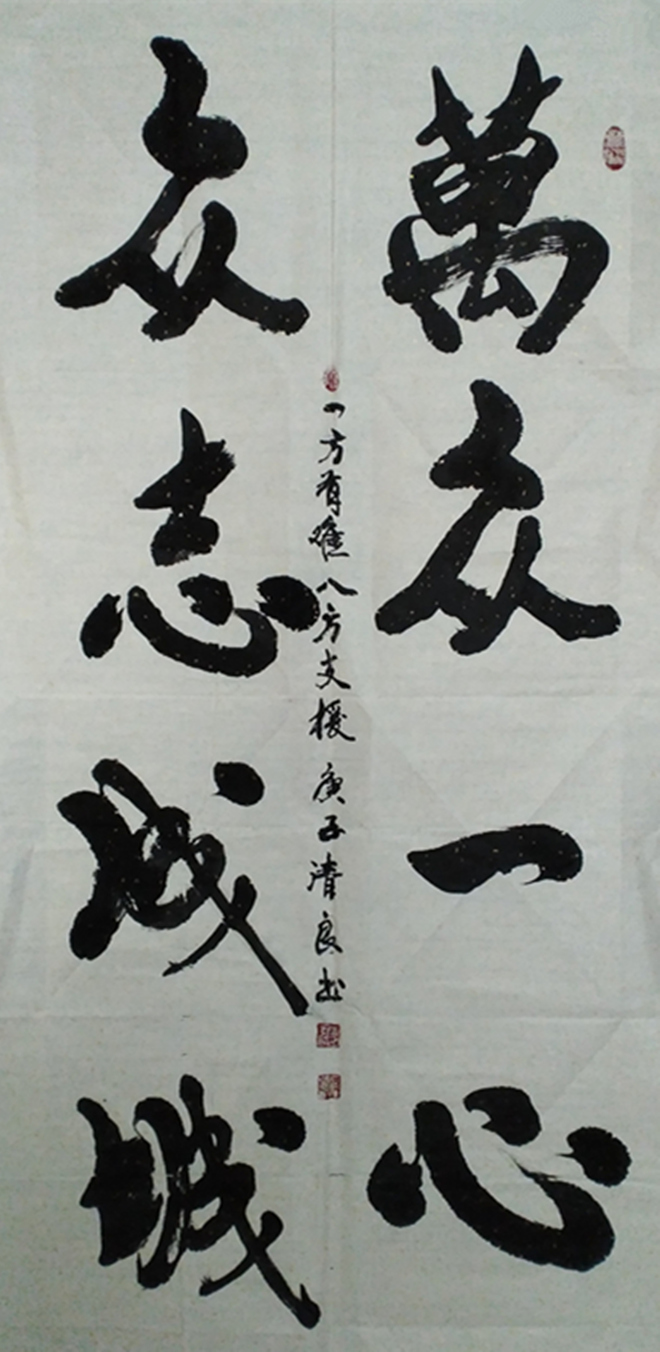 萬众一心
众志成城
一方有难八方支援 庚子清良书